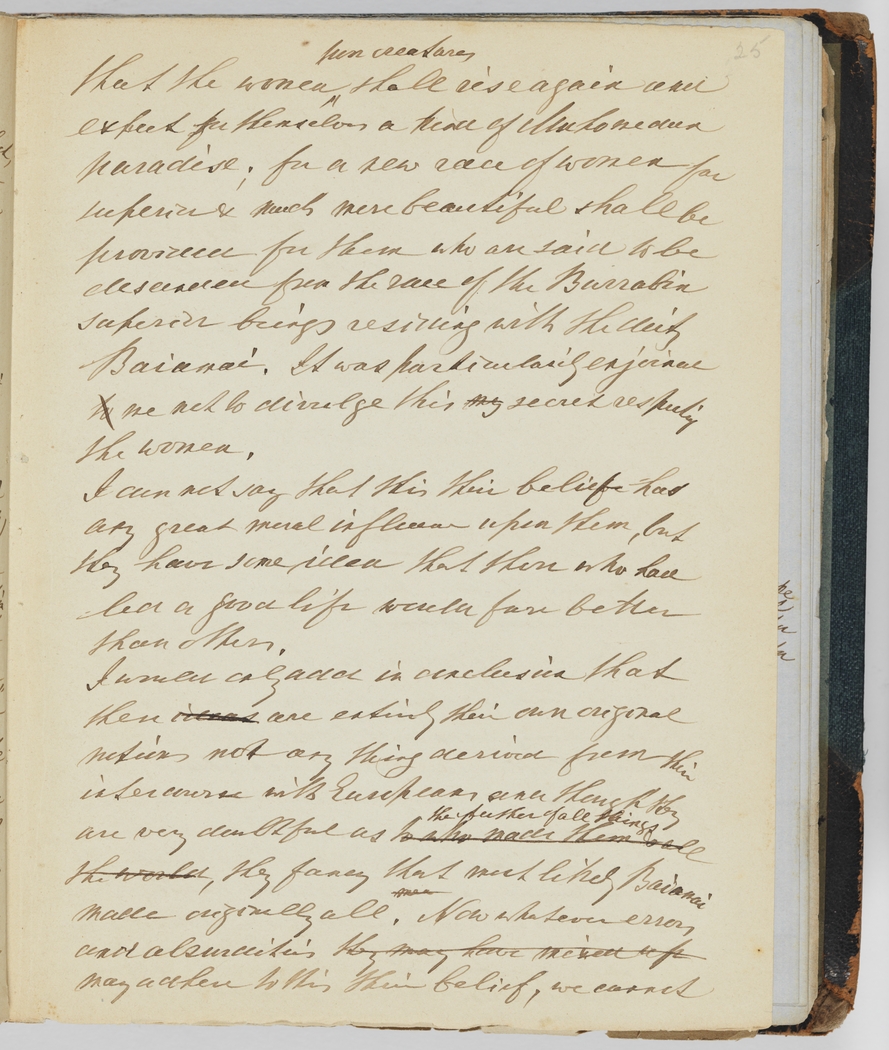 25
poor creatures
that the women shall rise again and
expect for themselves a kind of Mahomedan
paradise; for a new race of women far
superior & much more beautiful shall be
provided for them who are said to be
descended from the race of the Burrabin
superior beings residing with the deity
Baiamai. It was particularily enjoined
me not to divulge this my secret respecting
the women.
I can not say that this their belief has
any great moral influence upon them, but
they have some idea that those who have
led a good life would fare better
than others.
I would only add in conclusion that
these ideas are entirely their own original
notions not any thing derived from their
intercourse with Europeans and though they
the father of all things
are very doubtful as to who made them all
the world, they fancy that most likely Baiamai
made originally all. Now whatever errors
and absurdities they may have mixed up
may adhere to this their belief, we cannot